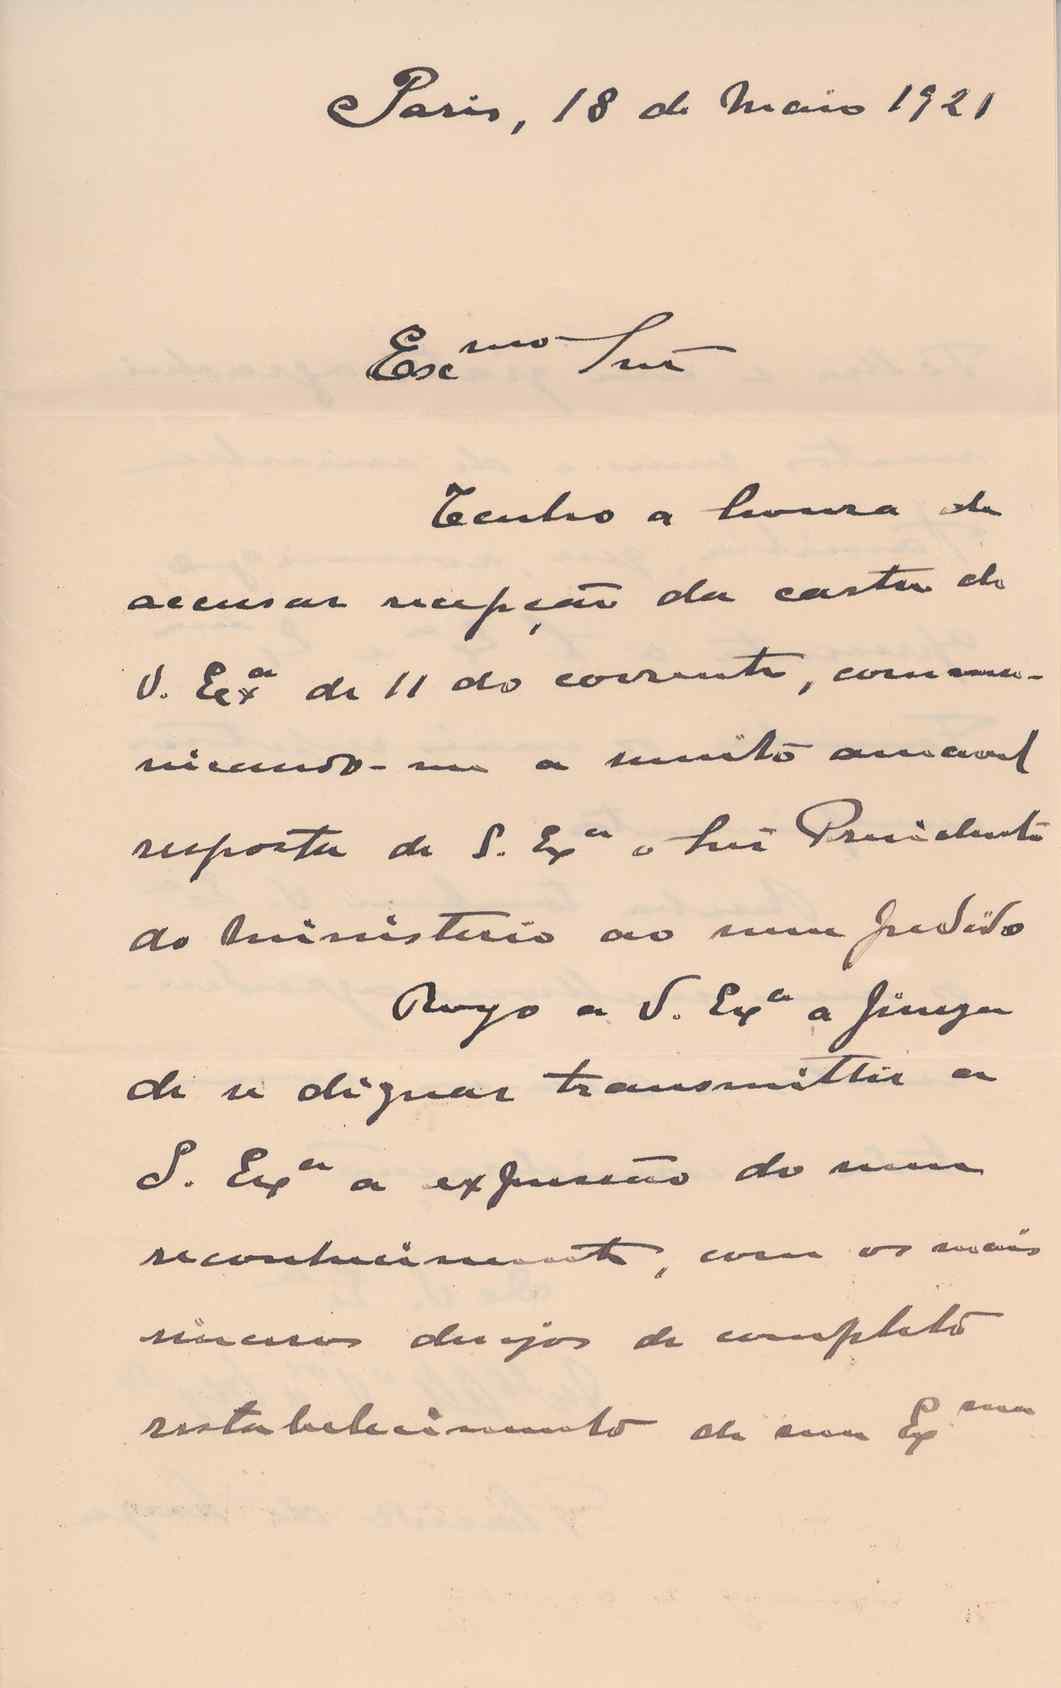 Paris, 18 de Maio 1921
Exc.mo Snr
Tenho a honra de
accusar recepção da carta de
V. Exa de 11 do corrente, commu-
nicando-me a muito amavel
resposta de S. Exa o Snr Presidente
do Ministerio ao meu pedido
Rogo a V. Exa a fineza
de se dignar transmittir a
S. Exa a expressão do meu
reconhecimento, com os mais
sinceros desejos de completo
restabelecimento de sua Exma